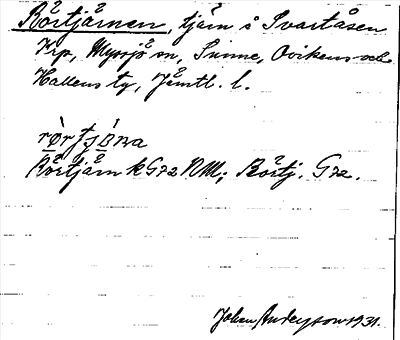 Rörtjärnen, tjärn i Svartåsen
Krp, Myssjö sn, Sunne, Ovikens och
Hallens tg, Jämtl. l.
Rörtjärn k G72 NM; Börtj. G72.
Johan Andersson 1931.